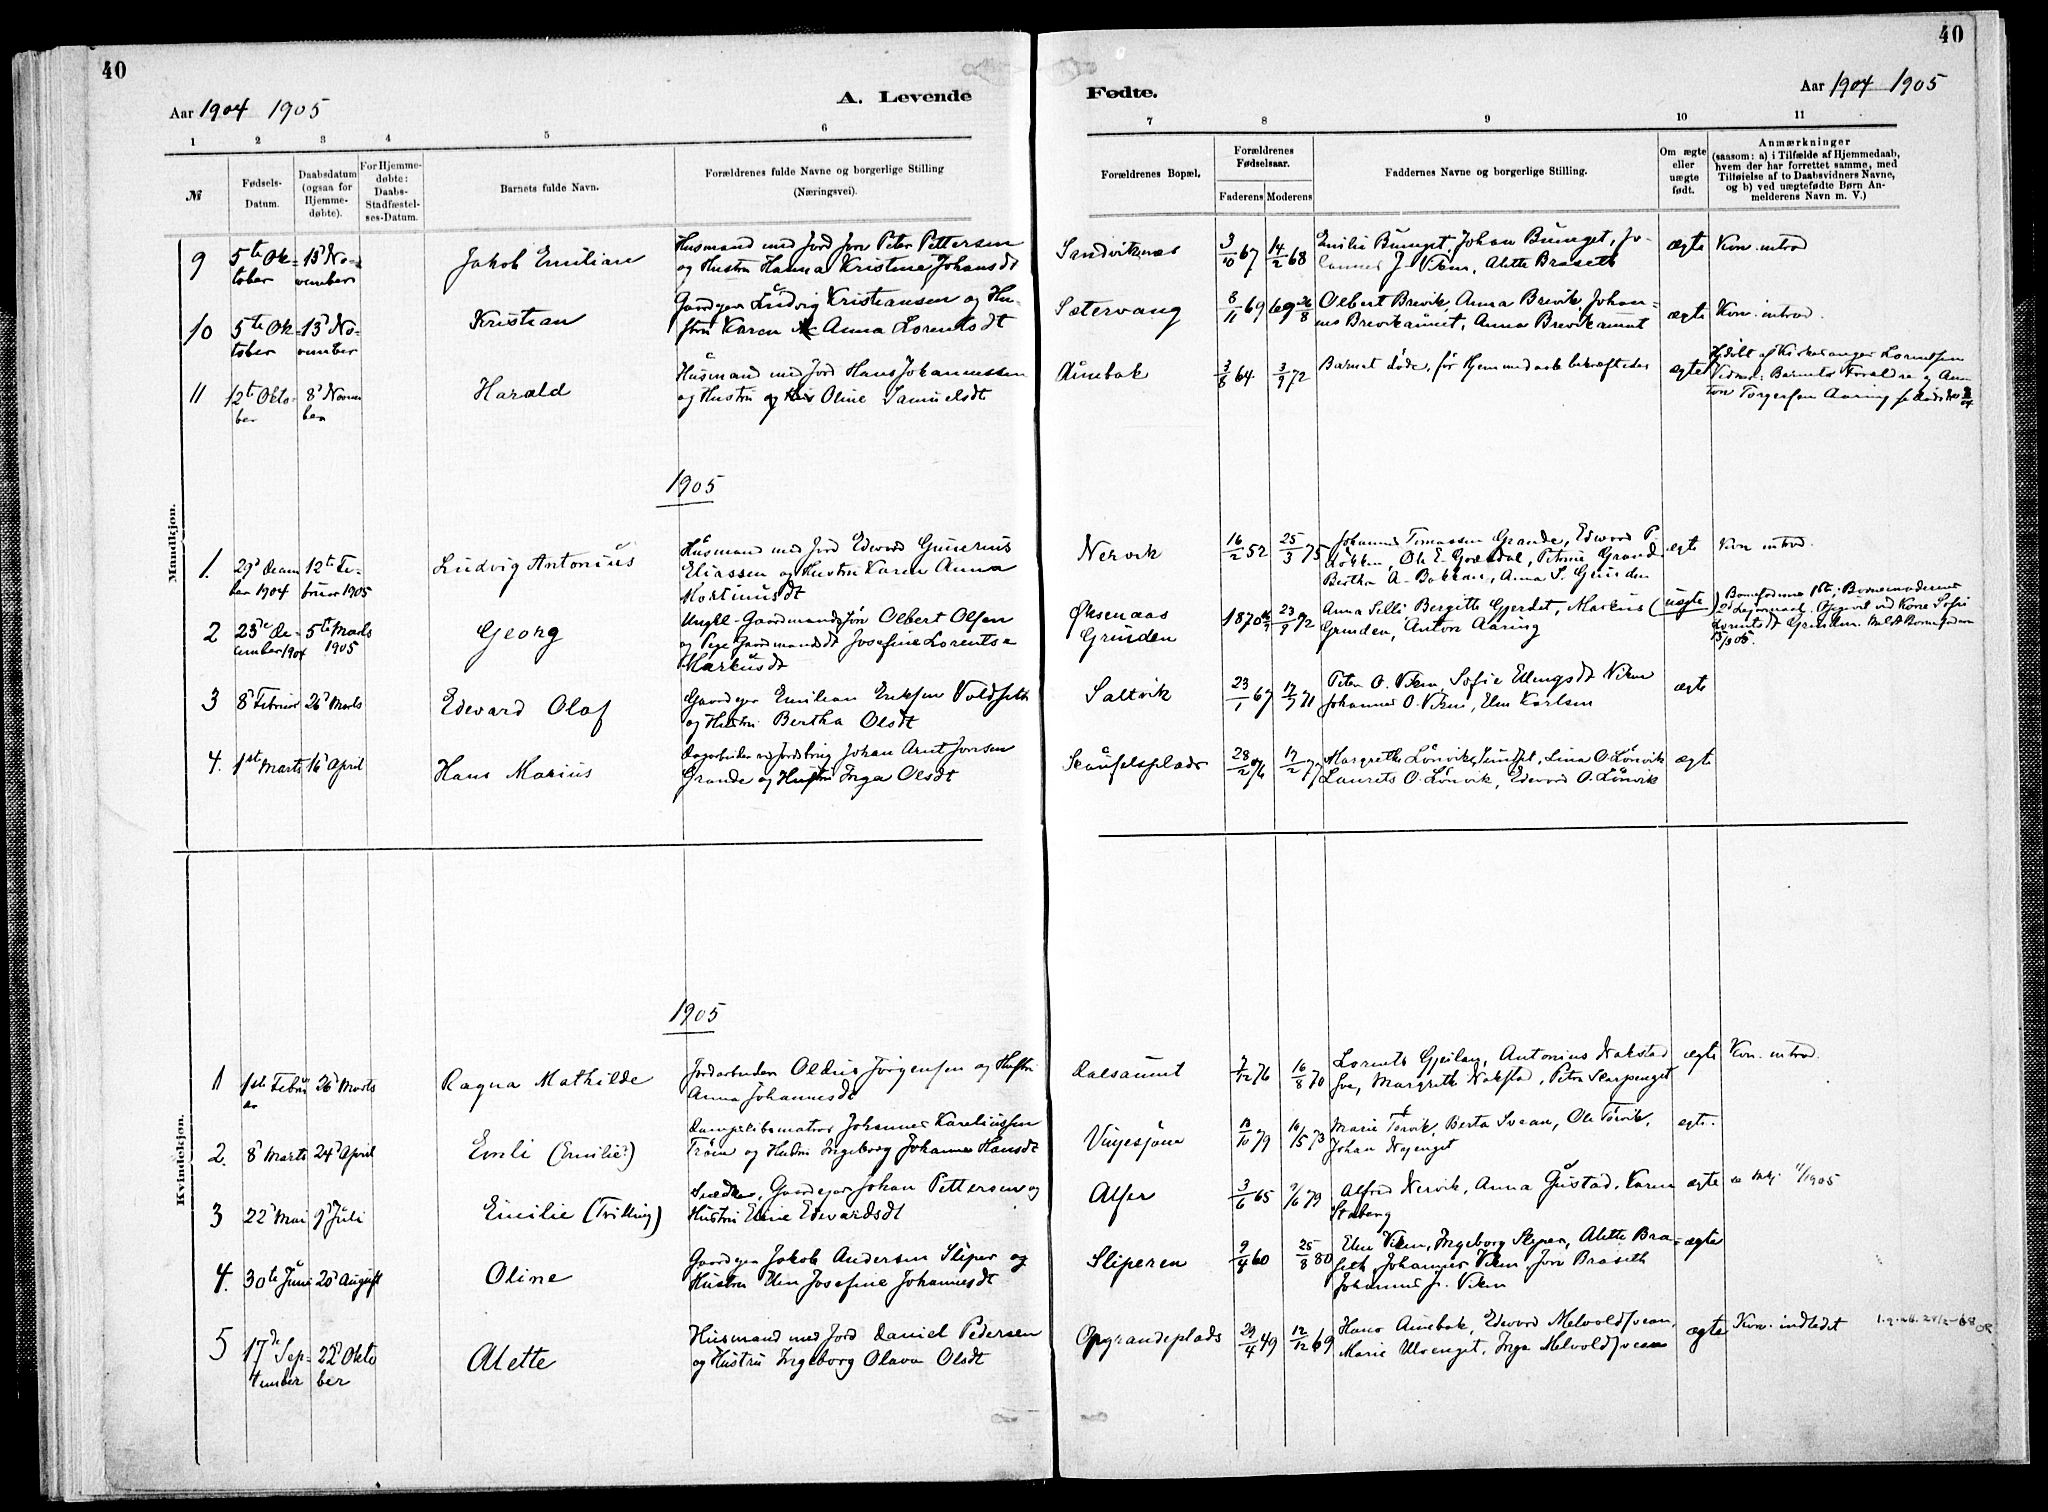 40
40
Aar 1904 1905
A. Levende
Fødte.
Aar 1904 1905
1 2 3 4 5 6 7 8 9 10 11
№
Fødsels-
Datum.
Daabsdatum
(ogsaa for
Hjemme-
døbte).
For Hjemme-
døbte:
Daabs-
Stadfæstel-
ses-Datum.
Barnets fulde Navn.
Forældrenes fulde Navne og borgerlige Stilling
(Næringsvei).
Forældrenes Bopæl.
Forældrenes
Fødselsaar.
Faderens Moderens
Faddernes Navne og borgerlige Stilling.
Om ægte
eller
uægte
født.
Anmærkninger
(saasom: a) i Tilfælde af Hjemmedaab,
hvem der har forrettet samme, med
Tilføielse af to Daabsvidners Navne,
og b) ved uægtefødte Børn An-
melderens Navn m. V.)
Mandkjøn.
9 5te Ok- 13d No-
tober vember
Jakob Emilian
Husmand med Jord Jon Peter Pettersen
og Hustru Hanna Kristina Johansdt
Sandviknes
3/10 67 14/2 68
Emilie Buinget, Johan Buinget, Jo-
Viken, Alette Braseth
ægte Kon. introd
10 5te Ok- 13d No-
tober vember
Kristian
Gaardejer Ludvig Kristiansen og Hu-
stru Karen Anna Lorentsdt
Sætervang
8/11 69 69 26/8
Olbert Brevik, Anna Brevik, Johan-
nes Brevikaunet, Anna Brevikaunet
ægte Kon. introd.
11 12te Okto- 8d Novem
ber ber
Harald
Husmand med Jord Hans Johannessen
og Hustru Oline Samuelsdt
Aunebak
3/8 64 3/9 72
Barnet døde, før Hjemmedaab bekræftedes
ægte
Hjdøbt af Kirkesanger Lorntsen
Vidner: Barnets Forældre og An-
ton Torgersen Aaring
1905
1. 29d Decem 12te Fe-
ber 1904 bruar 1905
Ludvig Antonius
Husmand med Jord Edvard Gunerius
Eliassen og Hustru Karen Anna
Martinusdt
Nervik
16/2 52 25/3 75
Johannes Tomassen Grande, Edvard P.
Ole E. Petrine Grande
Bertha A. Bakken, Anna S. Grinden
ægte Kon introd.
2 23de De- 5te Marts
cember 1904 1905
Georg
Ungk-Gaardmandssøn Olbert Olsen
og Pige Gaardmandsdt Josefine Lorentse
Markusdt
Øksenaas
Grinden
1870 23/9 72
Anna Selli Bergitte Gjerdet, Markus
Grinden, Anton Aaring
(uægte)
Barnefaderens 1ste, Barnemoderens
2d Leiermaal. Opgivet ved Kone Sofie
Lorntsdt Grinden.
3 8d Februar 26d Marts
Edevard Olaf
Gaardejer Emilian Eriksen Voldseth
og Hustru Bertha Olsdt
Saltvik
23/1 67 17/7 71
Peter O. Viken, Sofie Ellingsdt Viken
Johannes O. Viken, Elen Karlsen
ægte
4. 1ste Marts 16d April
Hans Marius
Dagarbeider ved Jordbrug Johan Arnt Jonsen
Grande og Hustru Inga Olsdt
Skaufelsplads
28/2 76 17/2 77
Margrethe Lånvik, Lina O. Lånvik
Laurits O. Lånvik, Edevard O. Lånvik
ægte
Kvindekjøn.
1905
1 1ste Febru 26d Marts
ar
Ragna Mathilde
Jordarbeider Oldus Jørgensen og Hustru
Anna Johannesdt
Dalsaunet
7/12 76 16/8 70
Lornts Gjeilan, Antonius Nakstad
Margrethe Nakstad, Peter Skarpenget
ægte Kon. introd.
2. 8d Marts 24d April
Emli (Emilie?)
Dampskibsmatros Johannes Kareliussen
Trøen og Hustru Ingeborg Johanna Hansdt
Vinjesjøen
18/10 79 16/5 73
Marie Tørvik, Berta Svean, Ole Tørvik,
Johan Nyenget
ægte.
3 22d Mai 9d Juli
Emilie (Trilling)
Snedker, Gaardejer Johan Pettersen og
Hustru Eline Edevardsdt
Alfer
3/6 65 2/6 79
Alfred Nervik, Anna Gustad, Karen
Staberg
ægte
4. 30te Juni 20d August
Oline
Gaardejer Jakob Andersen Sliper og
Hustru Elen Josefine Johannesdt
Sliperen
9/8 60 25/8 80
Elen Viken, Ingeborg Sliper, Alette Bra-
seth, Johannes Viken, Jon Braseth
Johannes J. Viken
ægte
5 17de Sep- 22d Okto
tember ber
Alette
Husmand med Jord Daniel Pedersen
og Hustru Ingeborg Olava Olsdt
Opgrandeplads
29/4 49 12/12 69
Hans Aunebak, Edevard Melvoldsvean,
Marie Ulvenget, Inga Melvoldsvean
ægte Kon. indledet